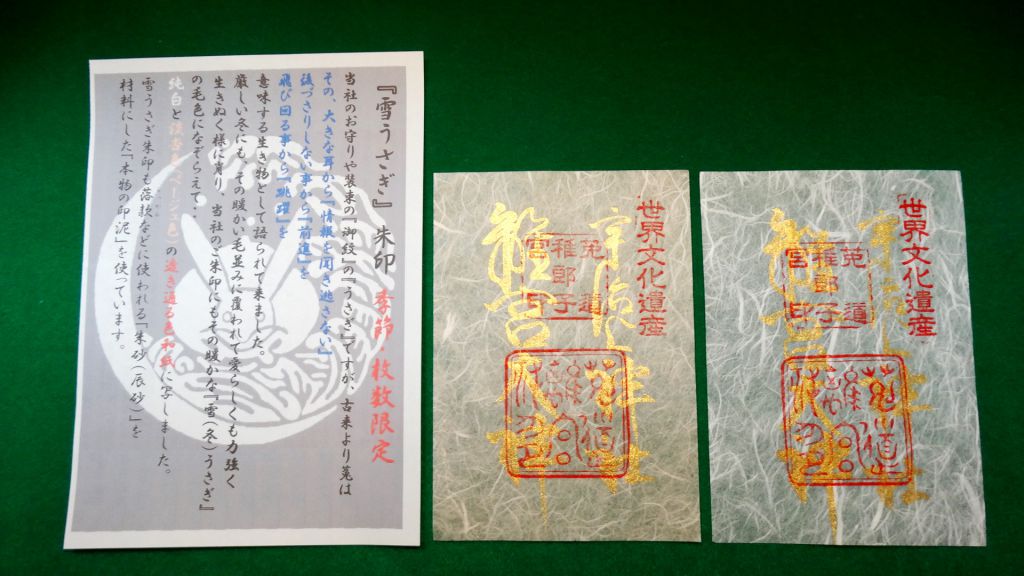 『雪うさぎ』朱印 季節・枚数限定
当社のお守りや装束の『御紋』の『うさぎ』ですが、古来より兎は
その、大きな耳から『情報を聞き逃さない』
後づさりしない事から『前進』を
飛び回る事から『跳躍』を
意味する生き物として語られて来ました。
厳しい冬にも、その暖かい毛並みに覆われて愛らしくも力強く
生きぬく様に肖り、当社のご朱印にもその暖かな『雪(冬)うさぎ』
の毛色になぞらえて・・
純白と淡香色(ベージュ色)の透き通る色和紙に写しました。
雪うさぎ朱印も落款などに使われる「朱砂(辰砂)」を
材料にした『本物の印泥』を使っています。
世界文化遺産
宇治
菟道
稚郎子
宮印
菟道
離宮
世界文化遺産
宇治
菟道
稚郎子
宮印
菟道
離宮